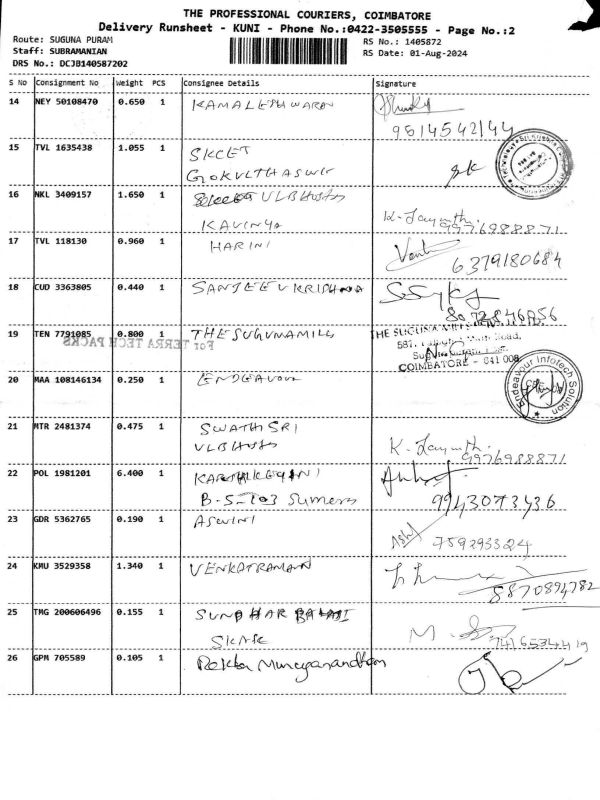 THE PROFESSIONAL COURIERS, COIMBATORE
Delivery Runsheet - KUNI - Phone No.:0422-3505555 - Page No.:2
Route: SUGUNA PURAM
RS No.: 1405872
Staff: SUBRAMANIAN
RS Date: 01-Aug-2024
DRS No.: DCJB140587202
S No Consignment No Weight PCS Consignee Details Signature
14 NEY 50108470 0.650 1 KAMALESHWARAN
9514542144
15 TVL 1635438 1.055 1 SKCET
GOKULTHASWIR
16 NKL 3409157 1.650 1 ULB Hosts
KAVINYA K. Jayanthi. 9976988871
17 TVL 118130 0.960 1 HARINI
6379180684
18 CUD 3363805 0.440 1 SANJEEVKRISHNA
19 TEN 7791085 0.800 1 THE SUGUNAMILLS
For TERRA TECH PACKS
THE SUGUNA MILLS
COIMBATORE - 641 008
20 MAA 108146134 0.250 1 ENDEAVOUR
Endeavour Infotech Solution
21 MTR 2481374 0.475 1 SWATHISRI
VLB Hosts K. Jayanthi. 9976988871
22 POL 1981201 6.400 1 KARTHIKEYANI
B-5-103 Sumeru 9943073436
23 GDR 5362765 0.190 1 ASWINI
759293324
24 KMU 3529358 1.340 1 VENKATRAMAN
8870894782
25 TMG 200606496 0.155 1 SUNDHAR BALAJI
7416534419
26 GPM 705589 0.105 1 Rekha Murugananandham